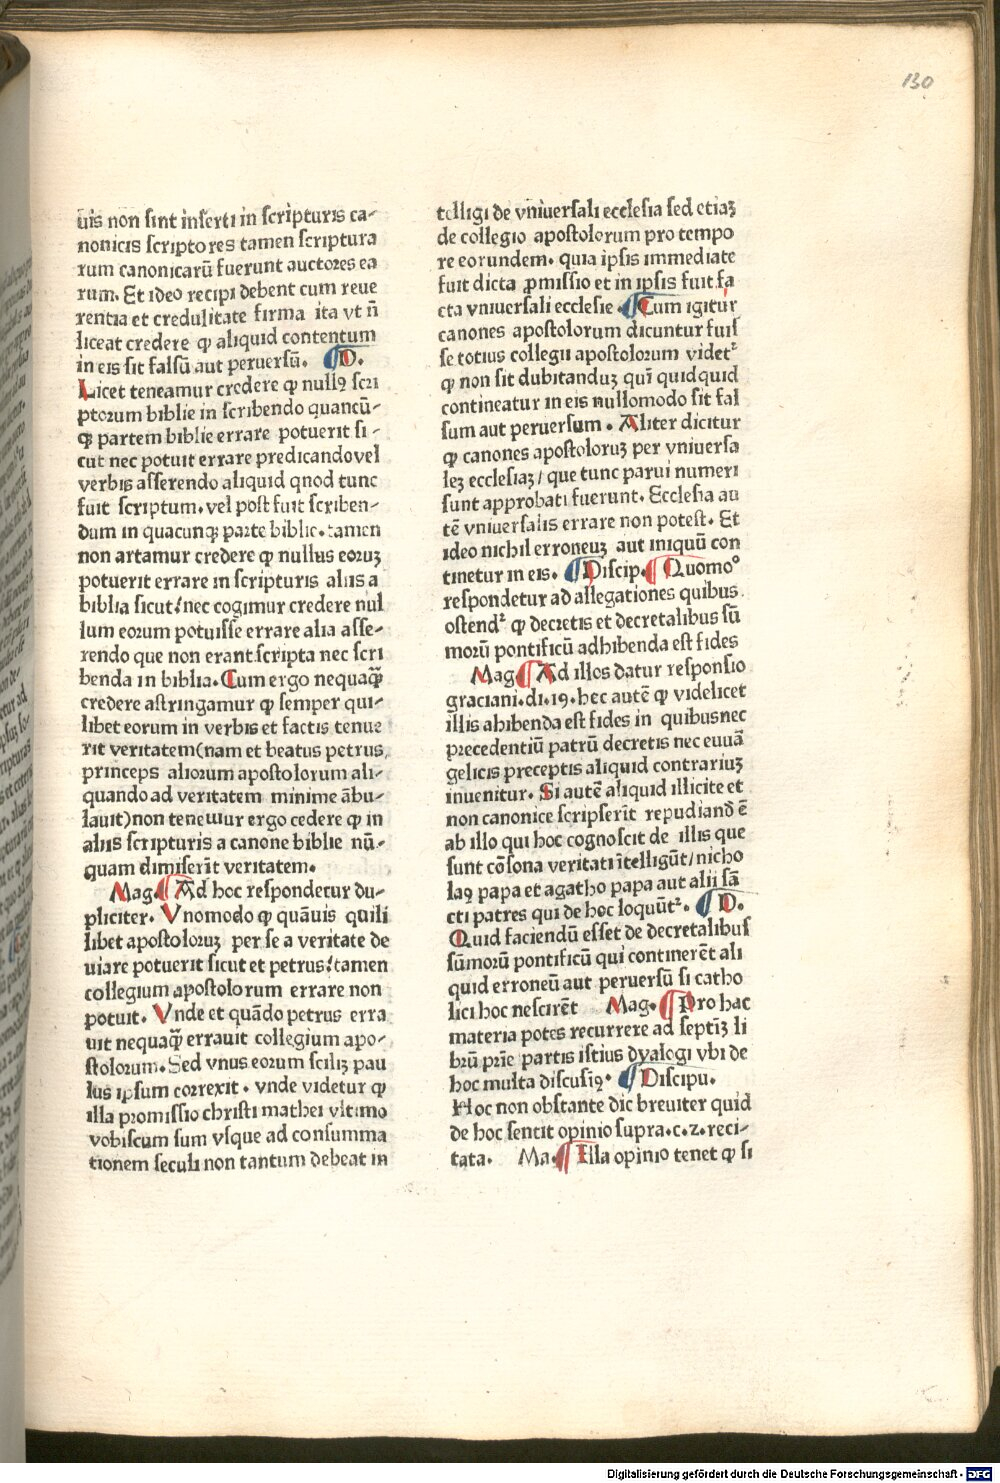 130
uis non sint inserti in scripturis ca-
nonicis scriptores tamen scriptura
rum canonicarū fuerunt auctores ea
rum. Et ideo recipi debent cum reue
rentia et credulitate firma ita vt n̄
liceat credere ꝙ aliquid contentum
in eis sit falsū aut peruersū. ¶ D.
Licet teneamur credere ꝙ nullꝰ scri
ptorum biblie in scribendo quancū-
qꝫ partem biblie errare potuerit si-
cut nec potuit errare predicando vel
verbis asserendo aliquid qnod tunc
fuit scriptum. vel post fuit scriben-
dum in quacunqꝫ parte biblie. tamen
non artamur credere ꝙ nullus eoruꝫ
potuerit errare in scripturis aliis a
biblia sicut: nec cogimur credere nul
lum eorum potuisse errare alia asse-
rendo que non erant scripta nec scri
benda in biblia. Cum ergo nequaꝗ̄
credere astringamur ꝙ semper qui-
libet eorum in verbis et factis tenue
rit veritatem (nam et beatus petrus,
princeps aliorum apostolorum ali-
quando ad veritatem minime ābu-
lauit) non teneuiur ergo cedere ꝙ in
aliis scripturis a canone biblie nū-
quam dimiserīt veritatem.
Mag. ¶ Ad hoc respondetur du-
pliciter. Vnomodo ꝙ quāuis quili
libet apostoloruꝫ per se a veritate de
uiare potuerit sicut et petrus: tamen
collegium apostolorum errare non
potuit. Vnde et quādo petrus erra
uit nequaꝗ̄ errauit collegium apo-
stolorum. Sed vnus eorum sciliꝫ pau
lus ipsum correxit. vnde videtur ꝙ
illa promissio christi mathei vltimo
vobiscum sum vsque ad consumma
tionem seculi non tantum debeat in
telligi de vniuersali ecclesia sed etiaꝫ
de collegio apostolorum pro tempo
re eorundem. quia ipsis immediate
fuit dicta ꝓmissio et in ipsis fuit fa
cta vniuersali ecclesie. ¶ Cum igitur
canones apostolorum dicuntur fuis
se totius collegii apostolorum videtᷣ
ꝙ non sit dubitanduꝫ quī quidquid
contineatur in eis nullomodo sit fal
sum aut peruersum. Aliter dicitur
ꝙ canones apostoloruꝫ per vniuersa
leꝫ ecclesiaꝫ / que tunc parui numeri
sunt approbati fuerunt. Ecclesia au
tē vniuersalis errare non potest. Et
ideo nichil erroneuꝫ aut iniquū con
tinetur in eis. ¶ Discip. ¶ Quomoº
respondetur ad allegationes quibus
ostendᷣ ꝙ decretis et decretalibus sū
morū pontificū adhibenda est fides
Mag. ¶ Ad illos datur responsio
graciani. di. 19. hec autē ꝙ videlicet
illis ahibenda est fides in quibus nec
precedentiū patrū decretis nec euuā
gelicis preceptis aliquid contrariuꝫ
inuenitur. Si autē aliquid illicite et
non canonice scripserīt repudiand ē
ab illo qui hoc cognoscit de illis que
sunt cōsona veritati ītelligūt / nicho
laꝰ papa et agatho papa aut alii sā
cti patres qui de hoc loquūtᷣ. ¶ D.
Quid faciendū esset de decretalibus
sūmorū pontificū qui continerēt ali
quid erroneū aut peruersū si catho
lici hoc nescirēt Mag. ¶ Pro hac
materia potes recurrere ad septiꝫ li
brū prīe partis istius dyalogi vbi de
hoc multa discusiꝰ. ¶ Discipu.
Hoc non obstante dic breuiter quid
de hoc sentit opinio supra. c. 2. reci-
tata. Ma. ¶ Illa opinio tenet ꝙ si
Digitalisierung gefördert durch die Deutsche Forschungsgemeinschaft - DFG